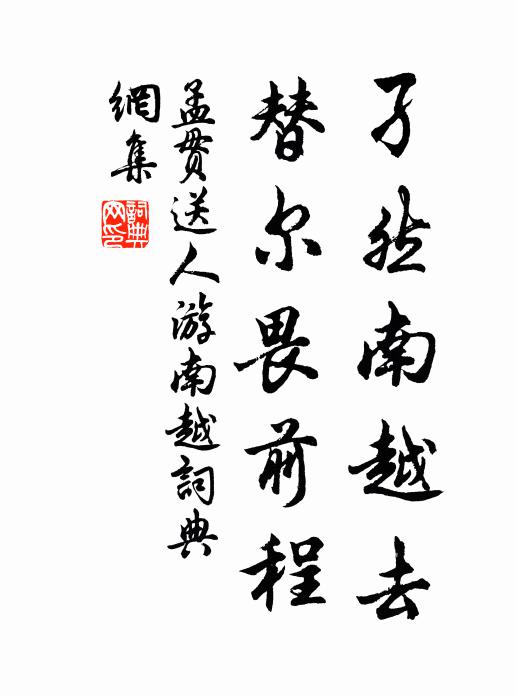 孑然南越去
替尔畏前程
孟贯送人游南越詞典
網集
詞典网印